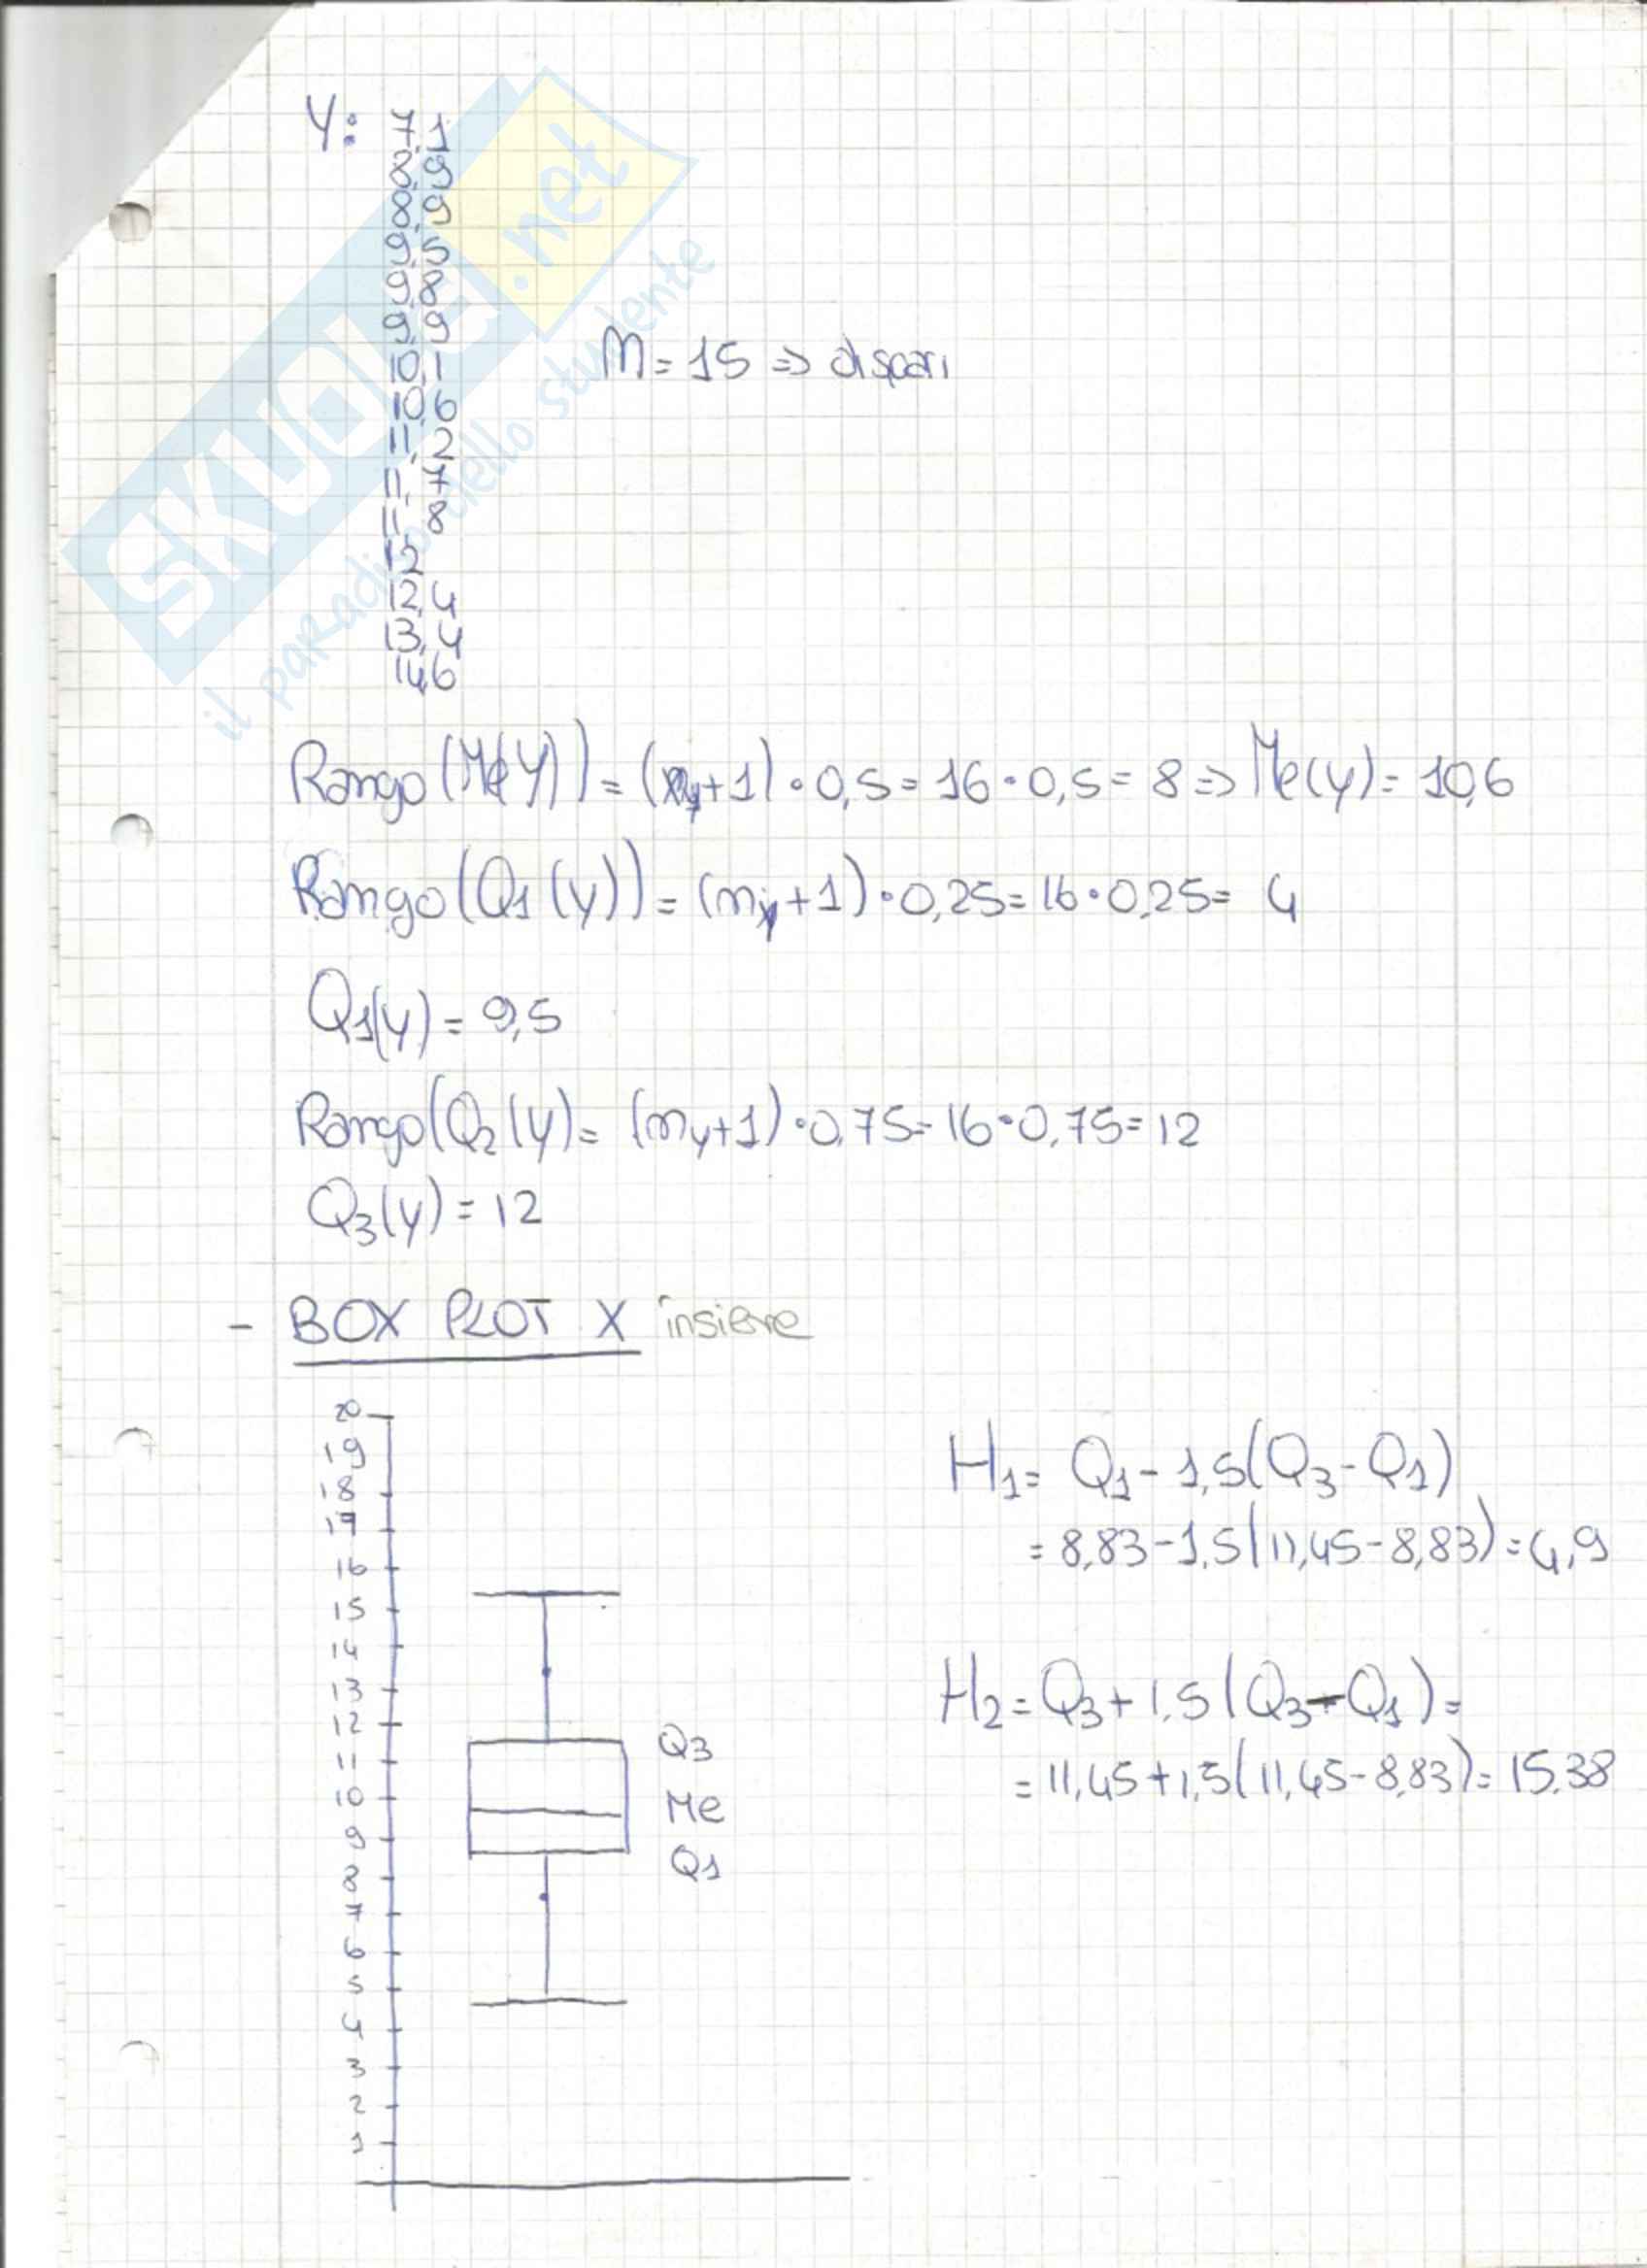 Y: 7,1
8,9
8,9
9,5
9,8
9,9
10,1
10,6
11,2
11,7
11,8
12
12,4
13,4
14,6
n = 15 => dispari
Rango (Me(Y)) = (ny+1) • 0,5 = 16 • 0,5 = 8 => Me(y) = 10,6
Rango (Q1 (y)) = (ny+1) • 0,25 = 16 • 0,25 = 4
Q1(y) = 9,5
Rango (Q2 (y) = (ny+1) • 0,75 = 16 • 0,75 = 12
Q3(y) = 12
- BOX PLOT X insieme
20
19
18
17
16
15
14
13
12
11
10
9
8
7
6
5
4
3
2
1
Q3
Me
Q1
H1 = Q1 - 1,5(Q3 - Q1)
= 8,83 - 1,5(11,45 - 8,83) = 4,9
H2 = Q3 + 1,5 (Q3 - Q1) =
= 11,45 + 1,5(11,45 - 8,83) = 15,38
SKUOLA.net
il paradiso dello studente